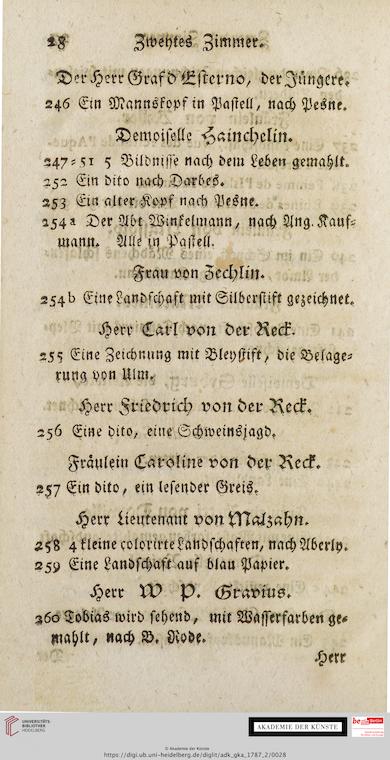 28 Zweytes Zimmer.
Der Herr Graf d'Esterno, der Jüngere.
246 Ein Mannskopf in Pastell, nach Pesne.
Demoiselle Hainchelin.
247-51 5 Bildnisse nach dem Leben gemahlt.
252 Ein dito nach Darbes.
253 Ein alter Kopf nach Pesne.
254a Der Abt Winkelmann, nach Ang. Kauf-
mann. Alle in Pastell.
Frau von Zechlin.
254b Eine Landschaft mit Silberstift gezeichnet.
Herr Carl von der Reck.
255 Eine Zeichnung mit Bleystift, die Belage-
rung von Ulm.
Herr Friedrich von der Reck.
256 Eine dito, eine Schweinsjagd.
Fräulein Caroline von der Reck.
257 Ein dito, ein lesender Greis.
Herr Lieutenant von Malzahn.
258 4 kleine colorirte Landschaften, nach Aberly.
259 Eine Landschaft auf blau Papier.
Herr W P. Gravius.
260 Tobias wird sehend, mit Wasserfarben ge-
mahlt, nach B. Rode.
Herr
UNIVERSITÄTS-
BIBLIOTHEK
HEIDELBERG
AKADEMIE DER KÜNSTE
be Berlin
© Akademie der Künste
https://digi.ub.uni-heidelberg.de/diglit/adk_gka_1787_2/0028